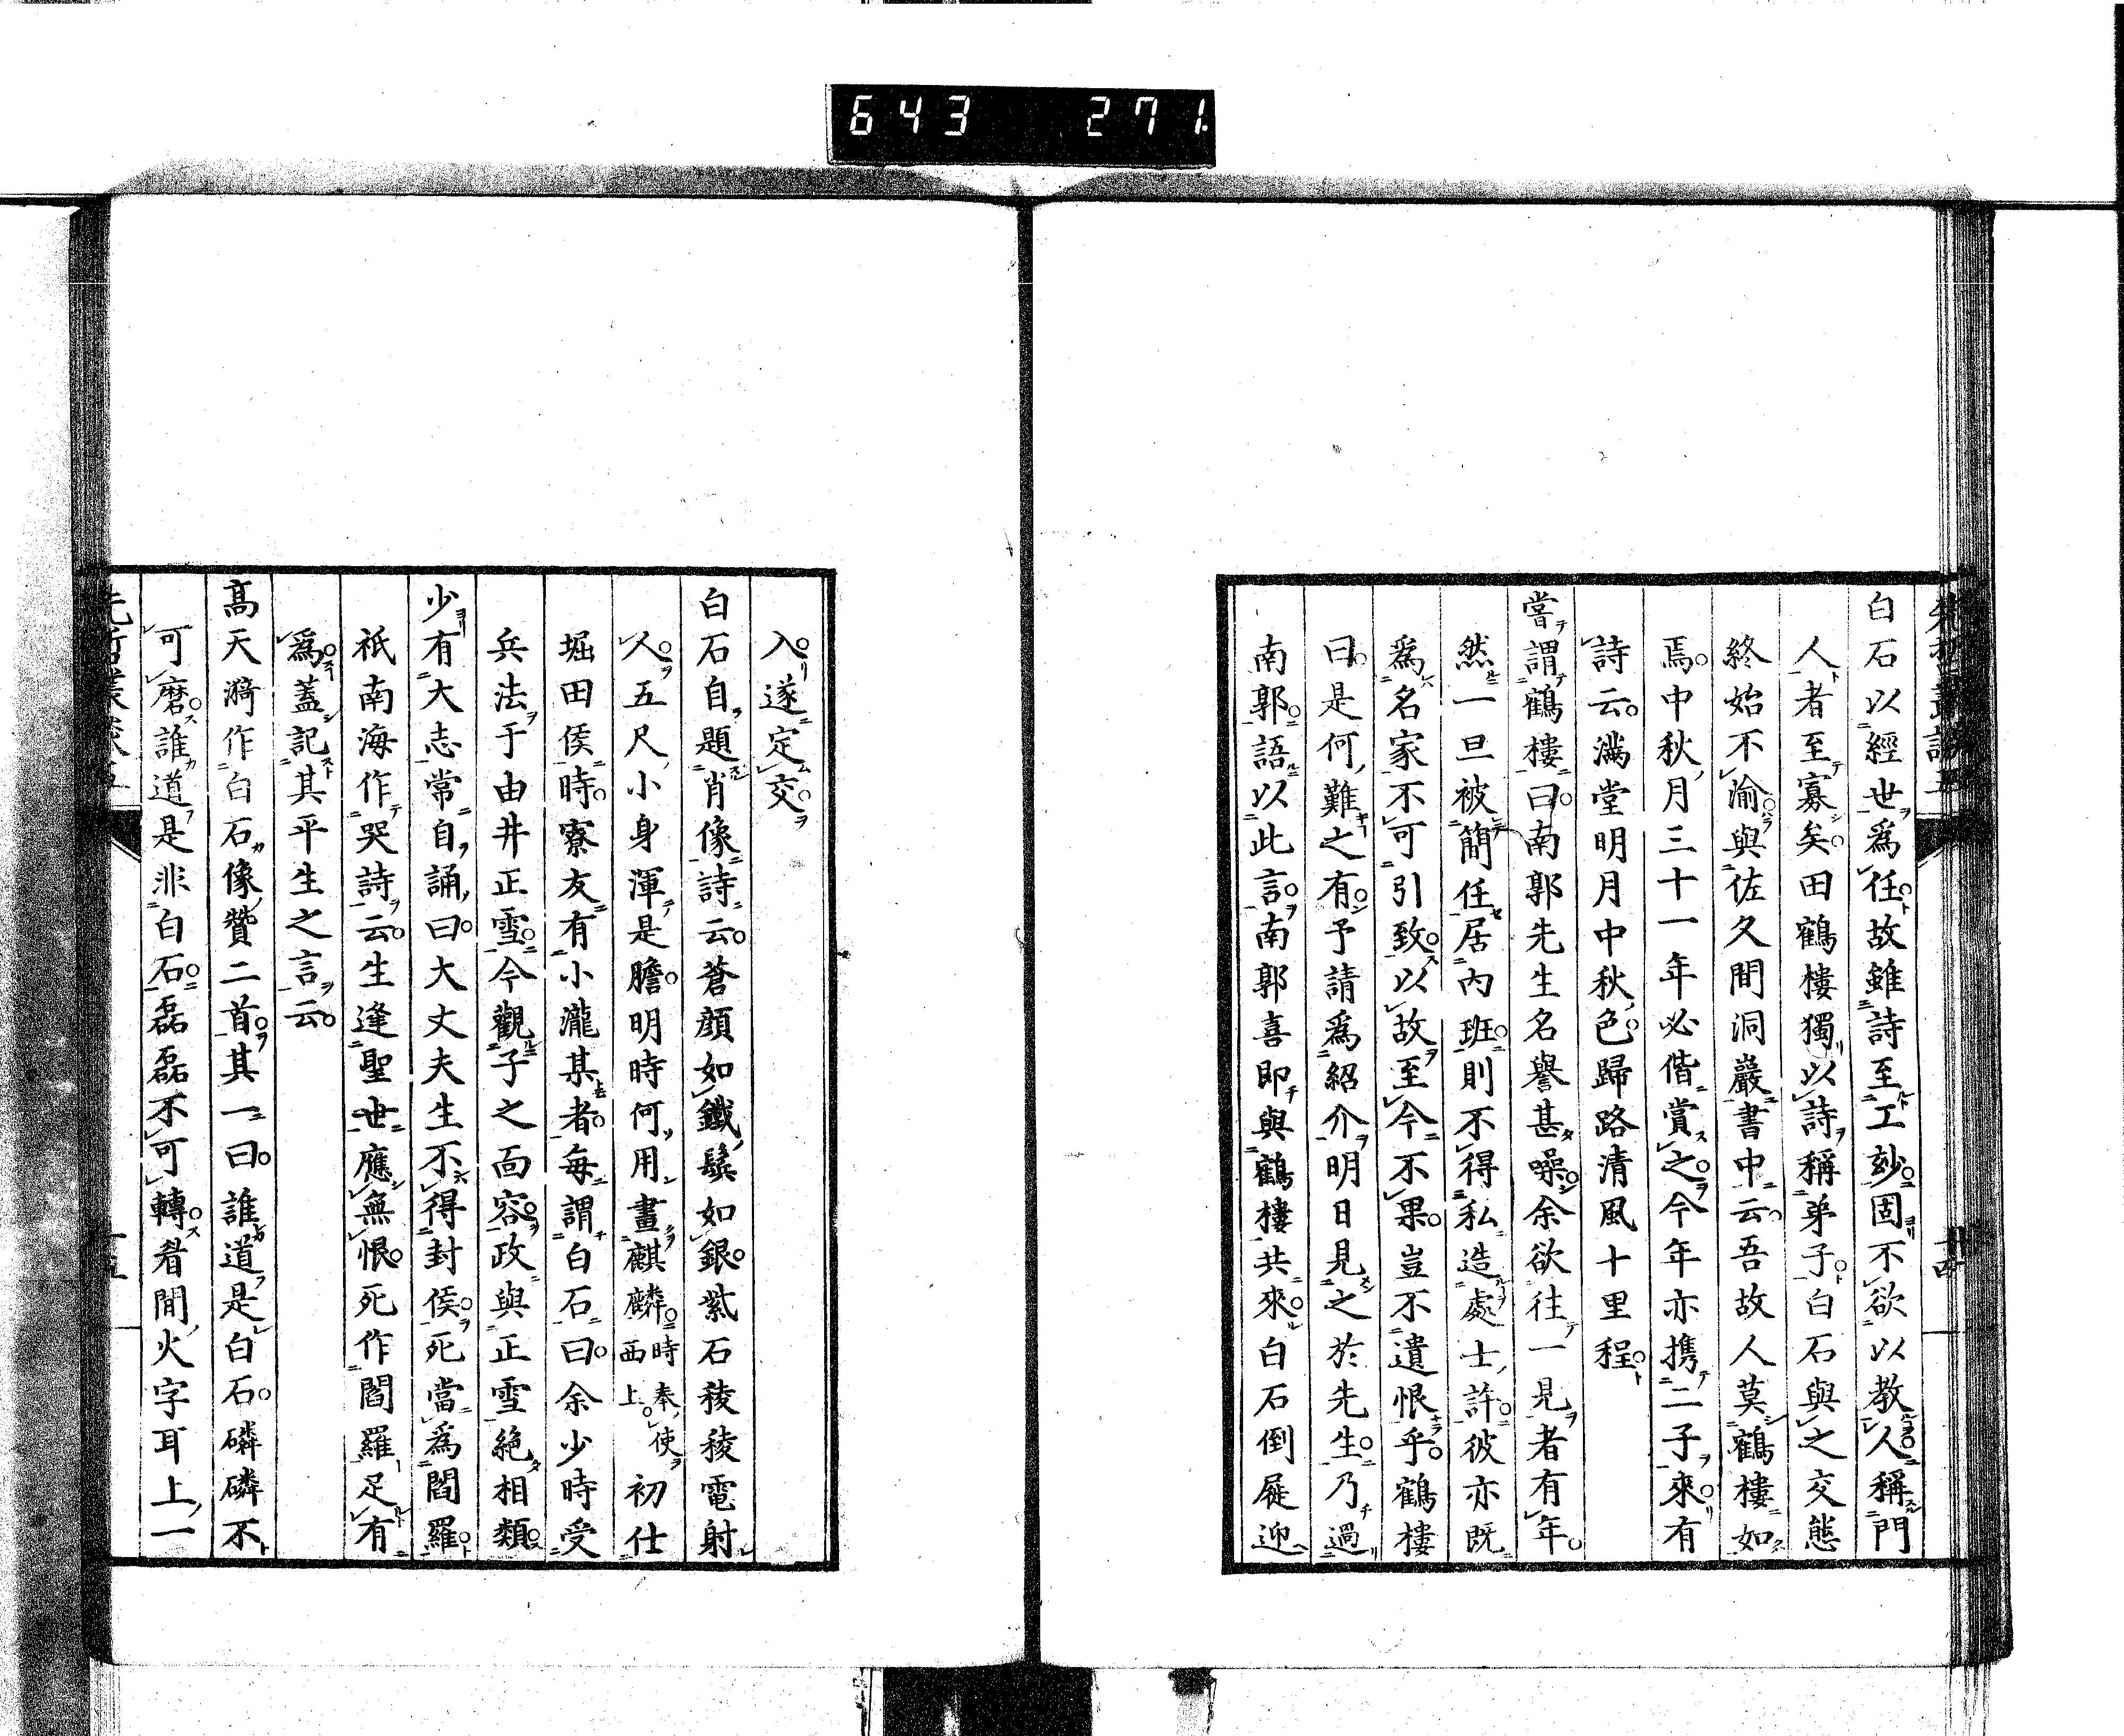 643 271
白石以經世爲任故雖詩至工玅固不欲以教人稱門
人者至寡矣田鶴樓獨以詩稱弟子白石與之交態
終始不渝與佐久間洞巖書中云吾故人莫鶴樓如
焉中秋月三十一年必偕賞之今年亦携二子來有
詩云滿堂明月中秋色歸路清風十里程
嘗謂鶴樓曰南郭先生名譽甚噪余欲往一見者有年
然一旦被簡任居內班則不得私造處士許彼亦既
爲名家不可引致以故至今不果豈不遺恨乎鶴樓
曰是何難之有予請爲紹介明日見之於先生乃過
南郭語以此言南郭喜即與鶴樓共來白石倒屣迎
入遂定交
白石自題肖像詩云蒼顔如鐵鬢如銀紫石稜稜電射
人五尺小身渾是膽明時何用畫麒麟時奉使西上初仕
堀田侯時寮友有小瀧某者每謂白石曰余少時受
兵法于由井正雪今觀子之面容政與正雪絶相類
少有大志常自誦曰大丈夫生不得封侯死當爲閻羅
祇南海作哭詩云生逢聖世應無恨死作閻羅足有
爲蓋記其平生之言云
高天漪作白石像贊二首其一曰誰道是白石磷磷不
可磨誰道是非白石磊磊不可轉看間火字耳上一